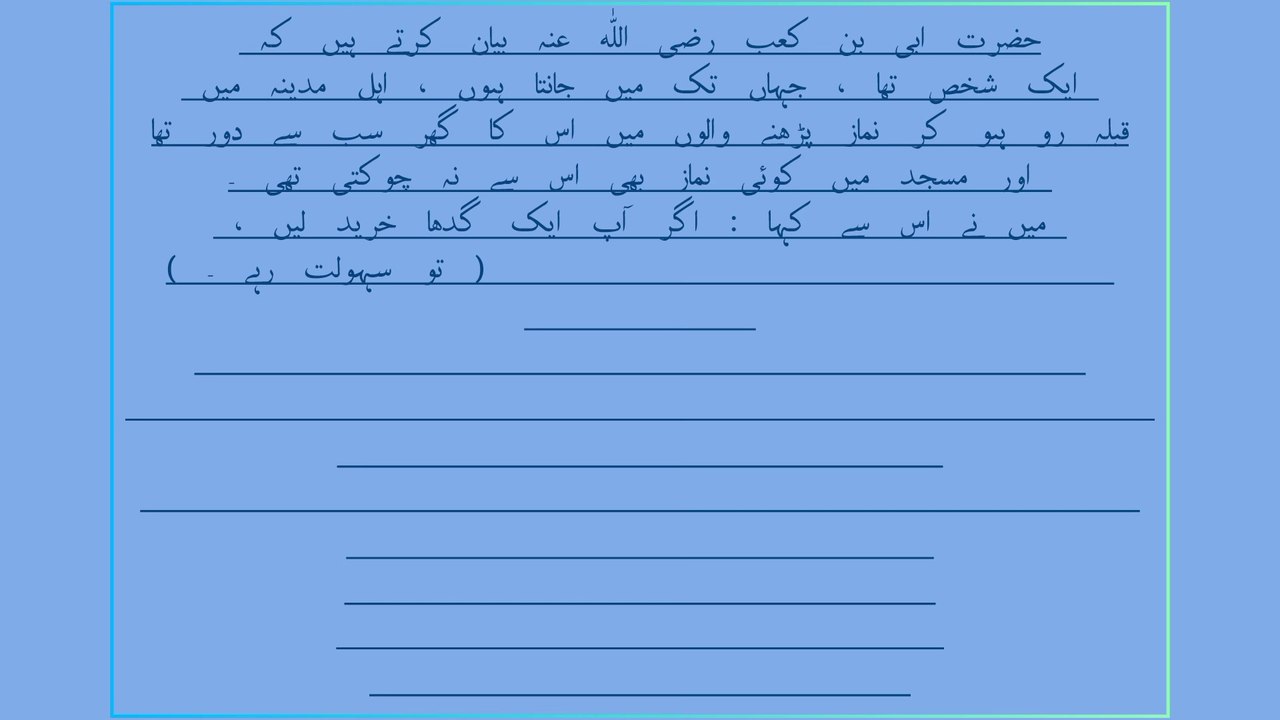 حضرت ابی بن کعب رضی اللہ عنہ بیان کرتے ہیں کہ
ایک شخص تھا ، جہاں تک میں جانتا ہوں ، اہل مدینہ میں
قبلہ رو ہو کر نماز پڑھنے والوں میں اس کا گھر سب سے دور تھا
اور مسجد میں کوئی نماز بھی اس سے نہ چوکتی تھی ۔
میں نے اس سے کہا : اگر آپ ایک گدھا خرید لیں ،
( تو سہولت رہے ۔ )